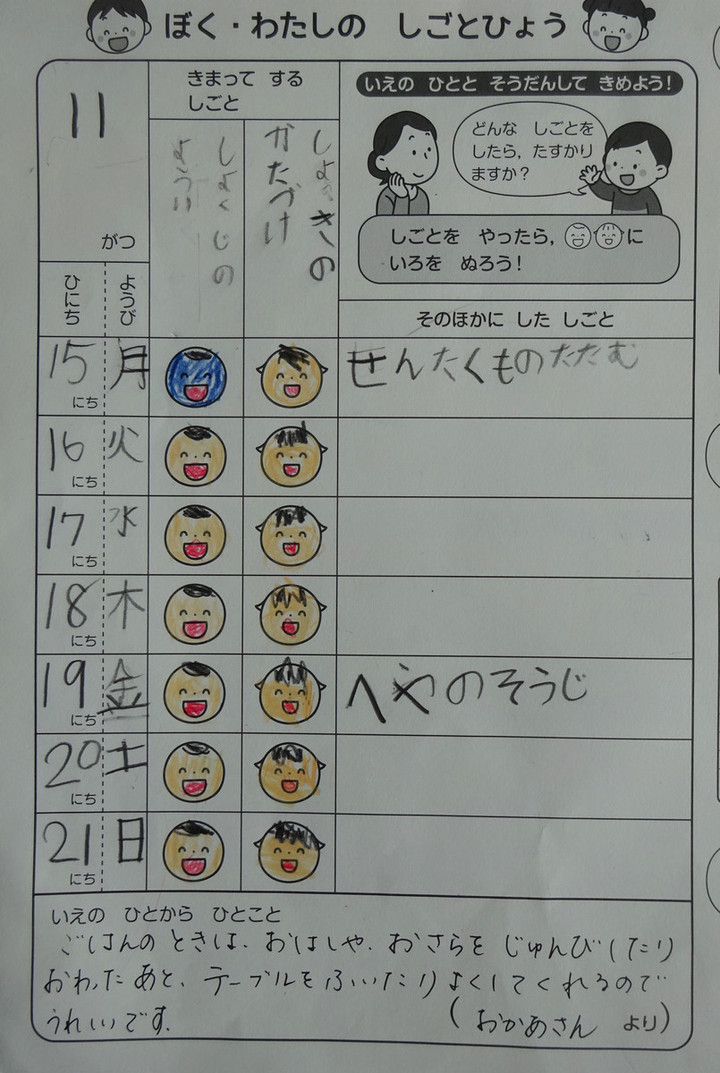 ぼく・わたしの しごとひょう
11
がつ
きまって する
しごと
いえの ひとと そうだんして きめよう!
どんな しごとを
したら、たすかり
ますか?
しょくじの
ようい
しょっきの
かたづけ
しごとを やったら、に
いろを ぬろう!
ひにち
ようび
そのほかに した しごと
15にち 月 せんたくものたたむ
16にち 火
17にち 水
18にち 木
19にち 金 へやのそうじ
20にち 土
21にち 日
いえの ひとから ひとこと
ごはんの ときは、おはしや、おさらを じゅんびしたり
おわったあと、テーブルをふいたり よくしてくれるので
うれしいです。
(おかあさん より)